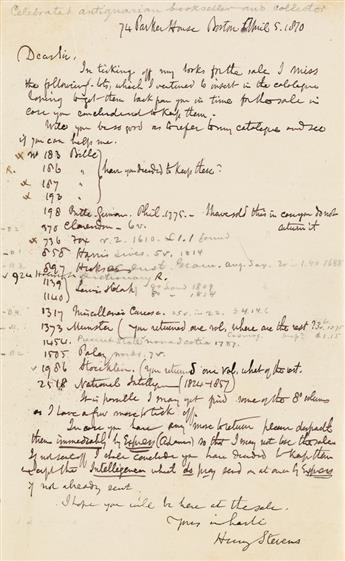 Celebrated antiquarian bookseller and collector
74 Parker House Boston April 5. 1870
Dear Sir,
In ticking off my books for the sale I miss
the following lots, which I ventured to insert in the catalogue
hoping to get them back from you in time for the sale in
case you concluded not to keep them.
Will you be so good as to refer to my catalogue and see
if you can help me.
183 Bible
186 " have you decided to keep these?
187 "
193 "
198 Bible German. Phil. 1775 - I have sold this in case you do not
return it
375 Clarendon 6v.
736 Fox v. 2. 1610. £1.1 found
858 Harris 5v. 1814
897
924 Dictionary R.
1139 Lewis & Clark 1809
1140 " 1814
1317 Miscellanea Curiosa
1373 Munster (you returned one vol, where are the rest?
1454 Present State Nova Scotia 1787.
1505 Paley works, 7v.
1986 Stocklein (you returned 5 one vol, what of the rest.
2518 National Intellig (1824-1857)
It is possible I may yet find some of the 8° volumes
as I have a few more to tick off.
In case you have any more to return please despatch
them immediately by Express (Adams) so that I may not lose the sale
If not sent off I shall conclude you have decided to keep them
except the Intelligencer which do pray send on at once by Express
if not already sent
I hope you will be here at the sale.
Yours in haste
Henry Stevens